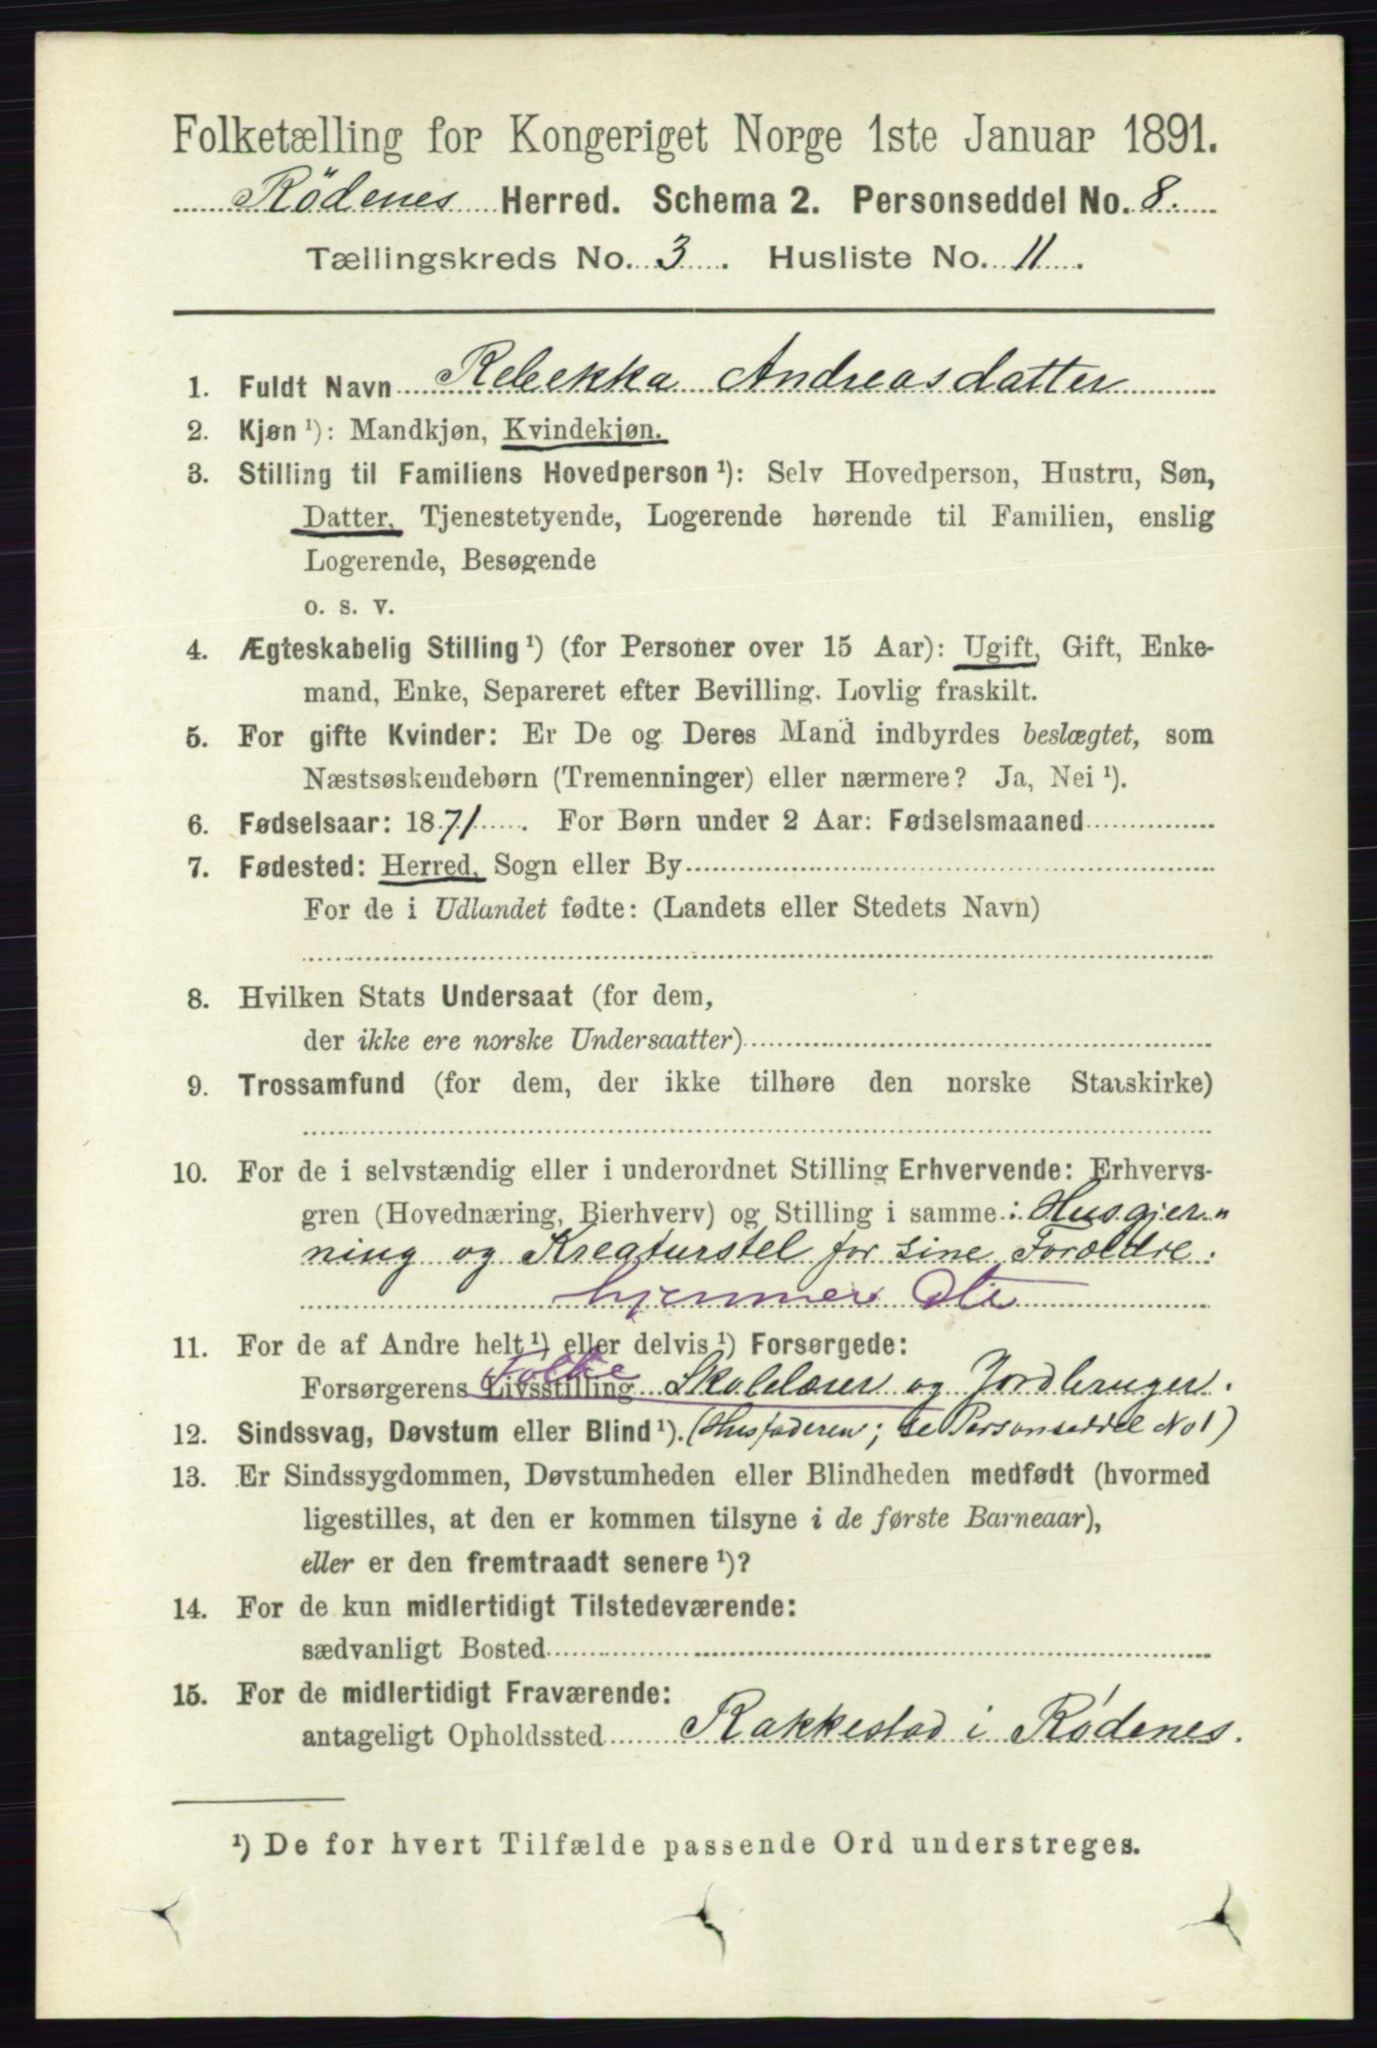 Folketælling for Kongeriget Norge 1ste Januar 1891.
Rödenes Herred. Schema 2. Personseddel No. 8.
Tællingskreds No. 3. Husliste No. 11.
1. Fuldt Navn Rebekka Andreasdatter
2. Kjøn ¹): Mandkjøn, Kvindekjøn.
3. Stilling til Familiens Hovedperson ¹): Selv Hovedperson, Hustru, Søn,
Datter, Tjenestetyende, Logerende hørende til Familien, enslig
Logerende, Besøgende
o. s. v.
4. Ægteskabelig Stilling ¹) (for Personer over 15 Aar): Ugift, Gift, Enke-
mand, Enke, Separeret efter Bevilling. Lovlig fraskilt.
5. For gifte Kvinder: Er De og Deres Mand indbyrdes beslægtet, som
Næstsøskendebørn (Tremenninger) eller nærmere? Ja, Nei ¹).
6. Fødselsaar: 1871. For Børn under 2 Aar: Fødselsmaaned
7. Fødested: Herred, Sogn eller By
For de i Udlandet fødte: (Landets eller Stedets Navn)
8. Hvilken Stats Undersaat (for dem,
der ikke ere norske Undersaatter)
9. Trossamfund (for dem, der ikke tilhøre den norske Statskirke)
10. For de i selvstændig eller i underordnet Stilling Erhvervende: Erhvervs-
gren (Hovednæring, Bierhverv) og Stilling i samme: Husgjer-
ning og Kreaturstel for sine Forældre.
hjemmev Dtr
11. For de af Andre helt ¹) eller delvis ¹) Forsørgede:
Folke
Forsørgerens Livsstilling Skolelærer og Jordbruger.
12. Sindssvag, Døvstum eller Blind ¹). (Husfaderen; se Personseddel No 1)
13. Er Sindssygdommen, Døvstumheden eller Blindheden medfødt (hvormed
ligestilles, at den er kommen tilsyne i de første Barneaar),
eller er den fremtraadt senere ¹)?
14. For de kun midlertidigt Tilstedeværende:
sædvanligt Bosted
15. For de midlertidigt Fraværende:
antageligt Opholdssted Rakkestad i Rödenes.
¹) De for hvert Tilfælde passende Ord understreges.